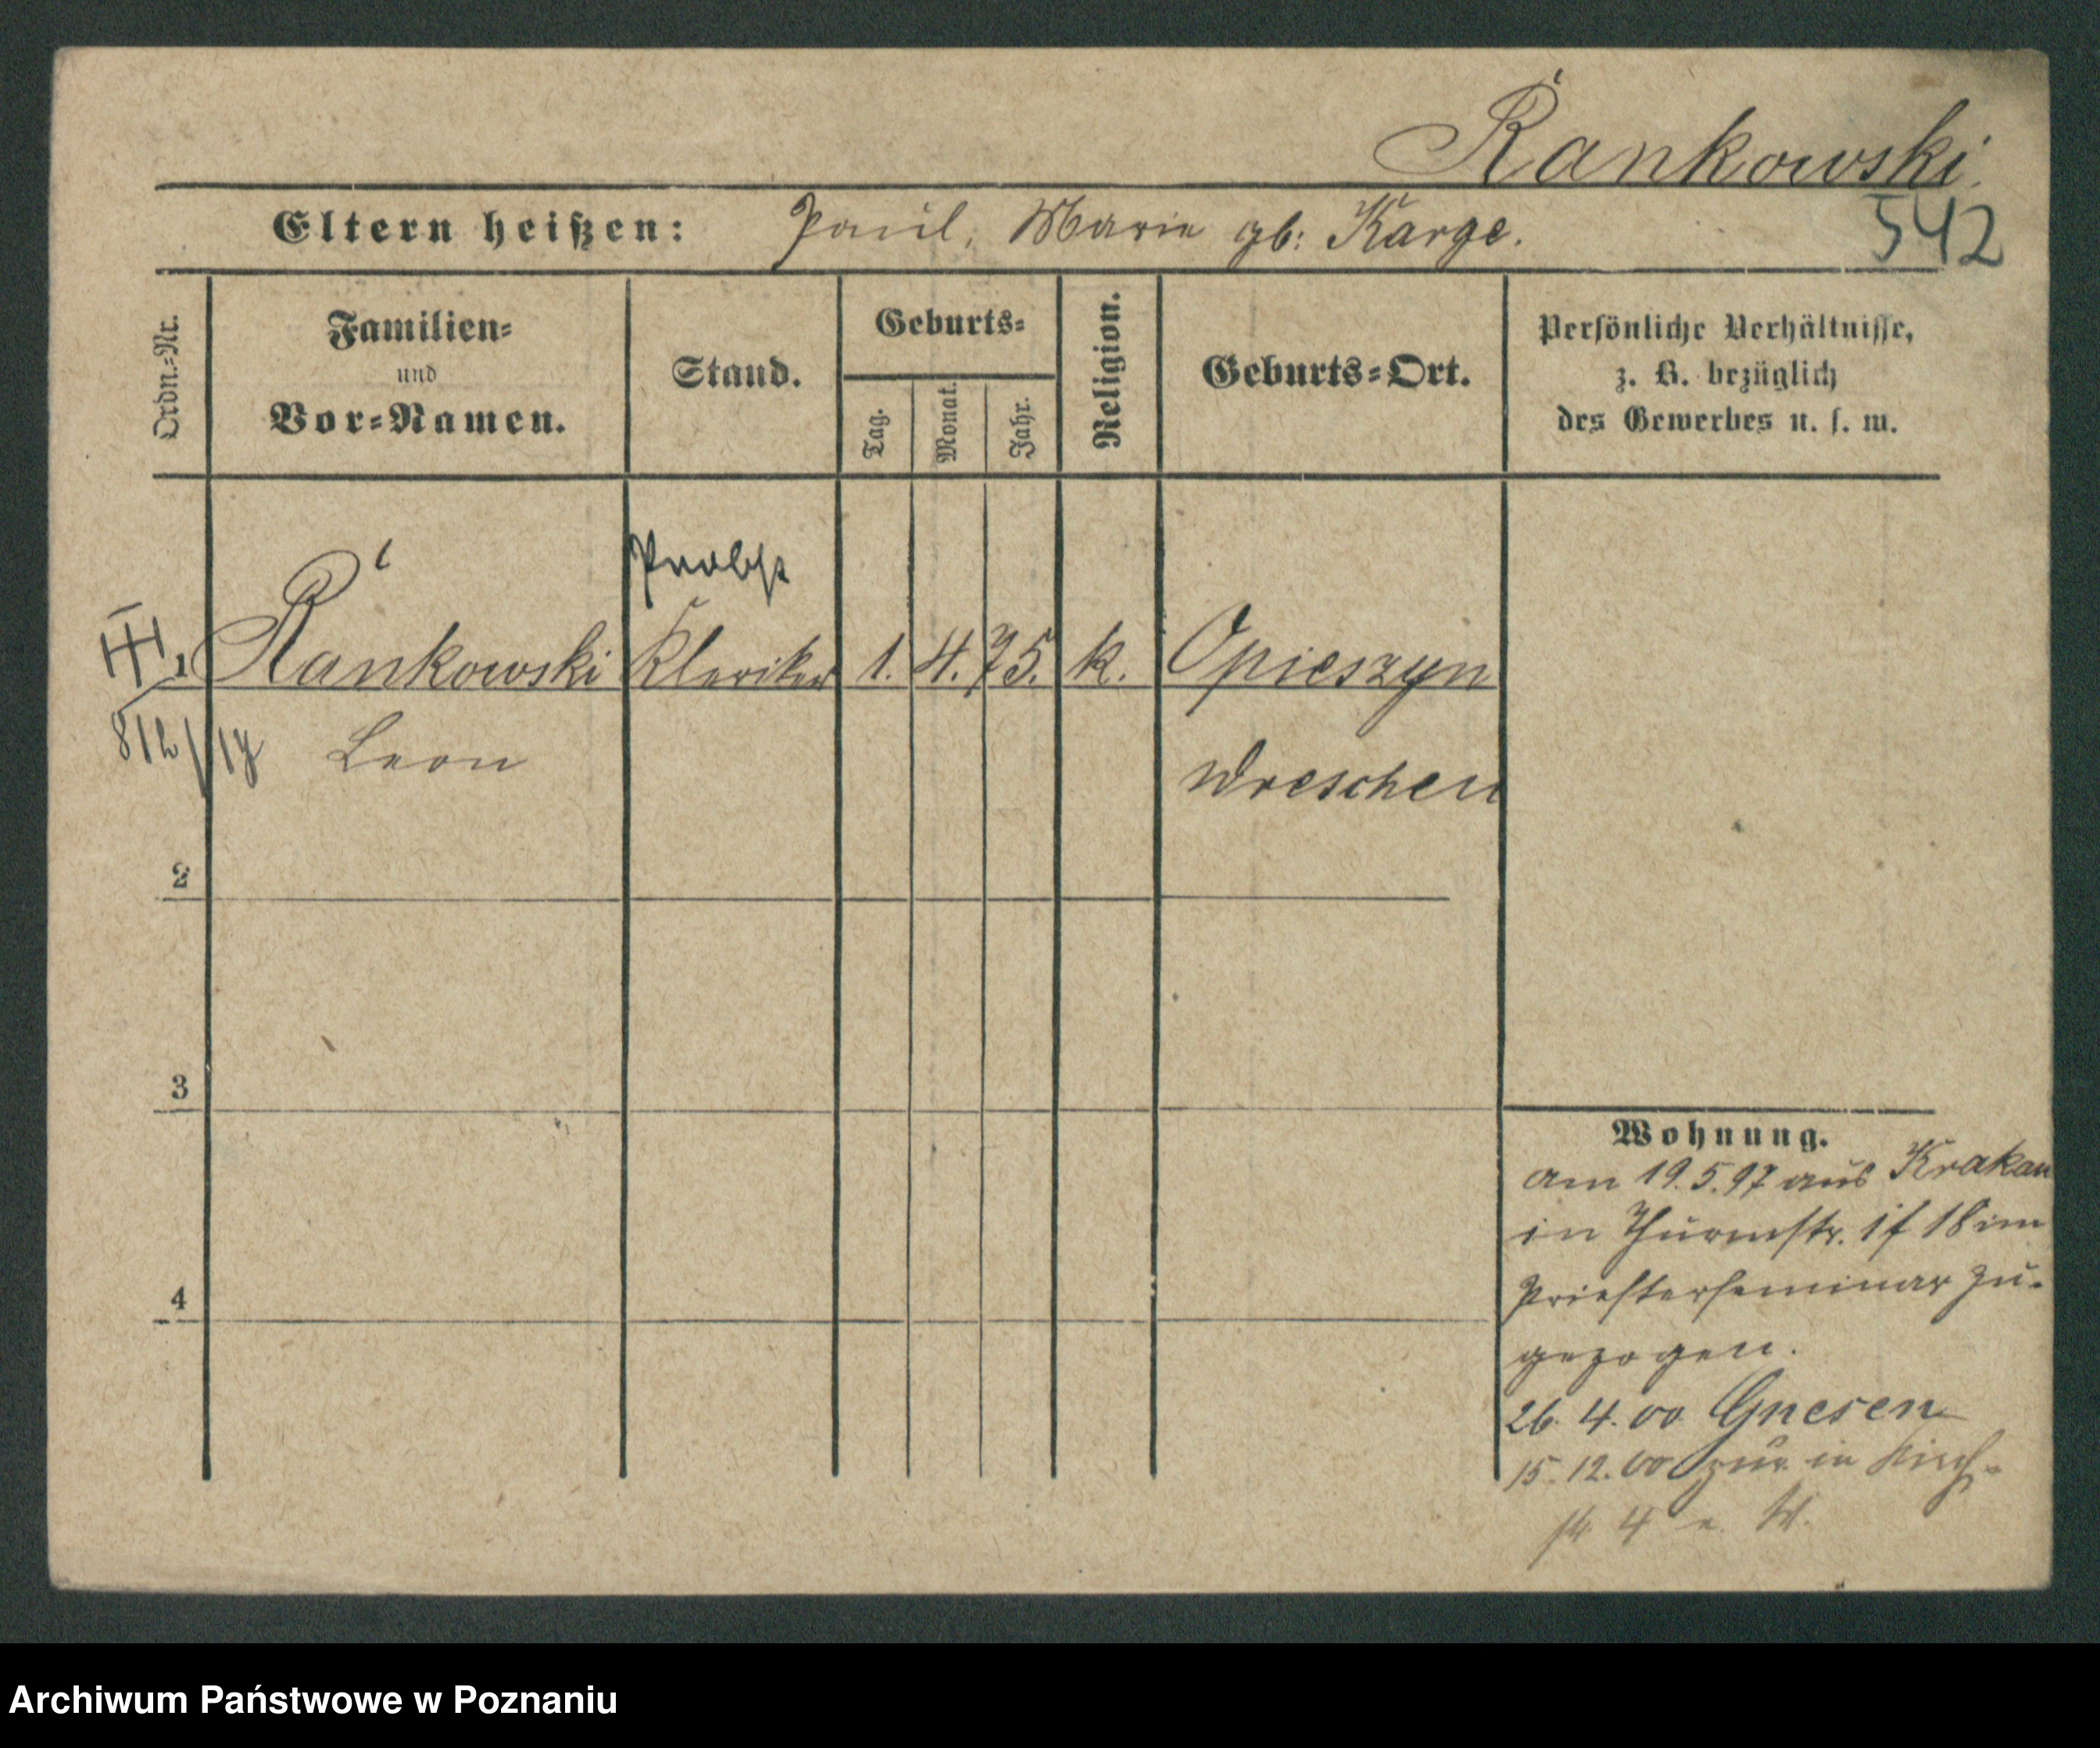 Rankowski.
Eltern heißen: Paul, Marie gb: Karge.
542
Ordn.=Nr.
Familien=
und
Vor=Namen.
Stand.
Geburts=
Tag.
Monat.
Jahr.
Religion.
Geburts=Ort.
Persönliche Verhältnisse,
z. B. bezüglich
des Gewerbes u. s. w.
Probst
1 Rankowski Kleriker 1. 4. 75. k. Opieszyn
Leon
Wreschen
2
3
4
Wohnung.
am 19.5.97 aus Krakau
in Thurmstr. 18 im
Priesterseminar zu-
gezogen.
26. 4. 00 Gnesen
15. 12. 00 zur. in Kirch-
str. 4
Archiwum Państwowe w Poznaniu